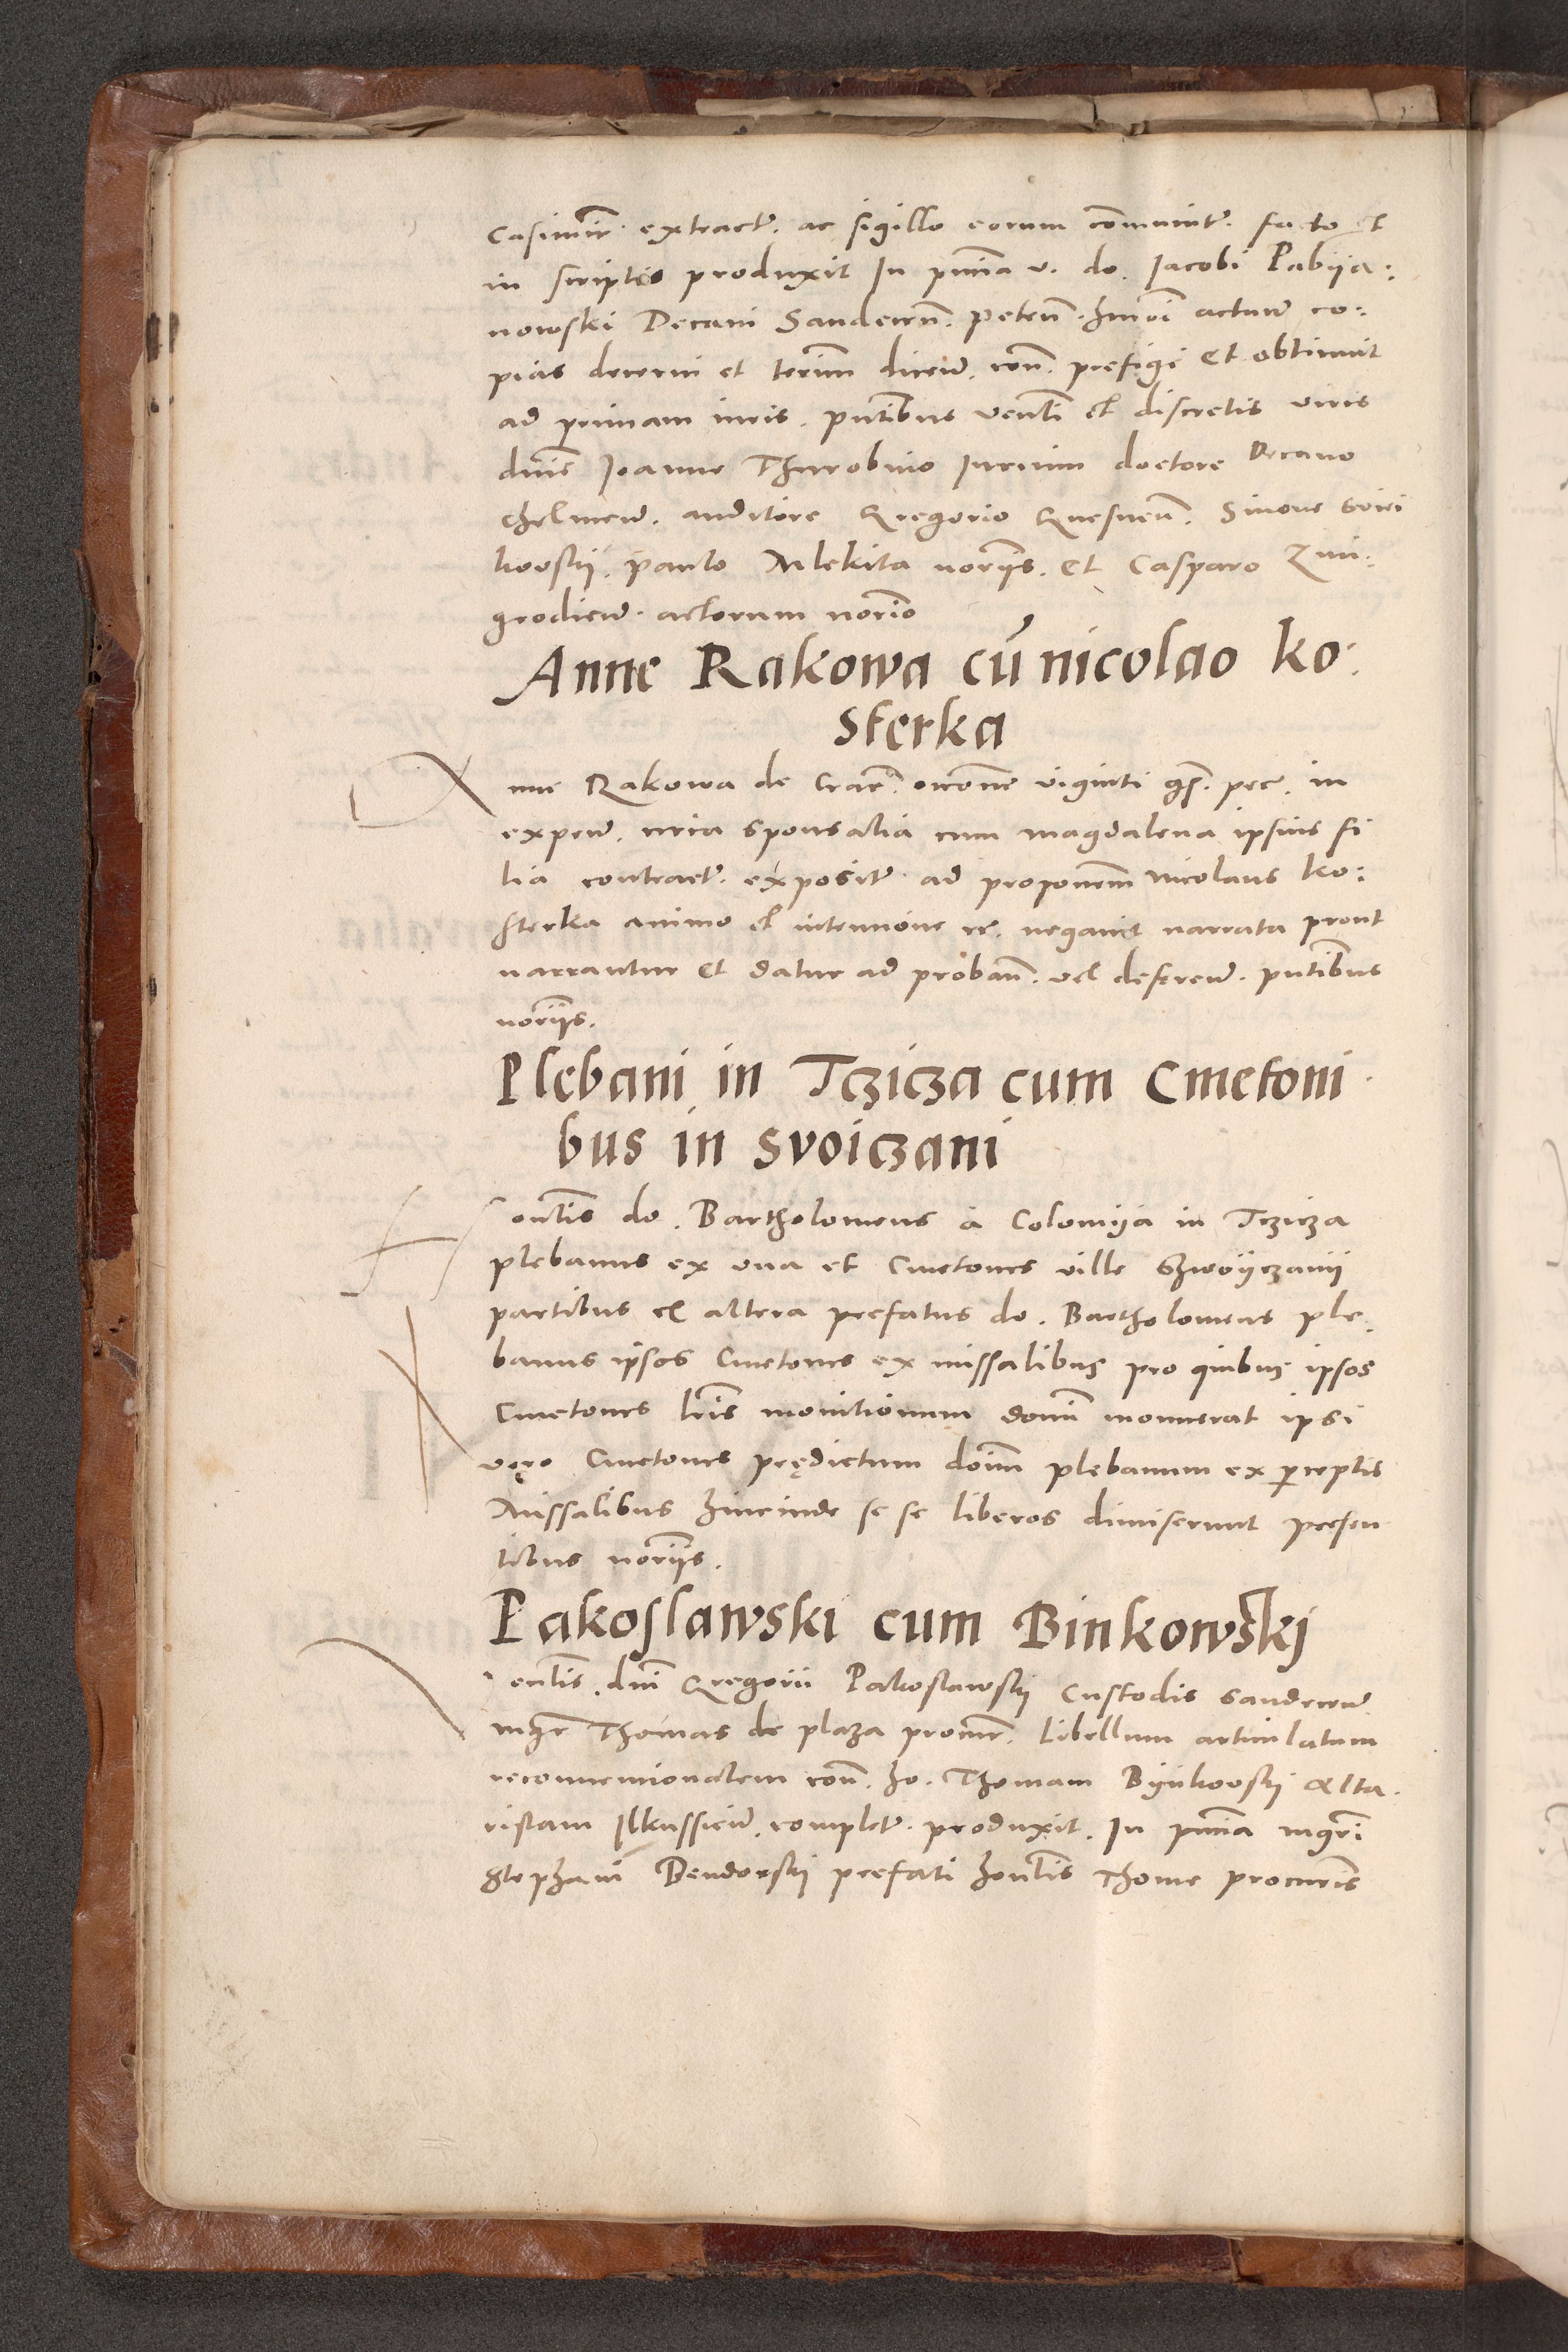 Casimir̃. extract̃. ac sigillo eorum cõmunit̃. facto et
in scriptis produxit In p̃ntia v. do. Iacobi Pabiia:
nowski Decani Sandecen̄. peteñ. hm̃oi actum̃ co:
pias decerni et terim̃ dicen̄. con̄. prefigi et obtinuit
ad primam iuris. p̃ntibus ven̄li et discretis viris
dn̄is Ioanne Thurobino Iurium doctore Decano
Chelmen̄. auditore Gregorio Quesnen̄. Simone
paulo Mlekita nor̃iis. et Casparo Zmi:
grodien̄. actorum nor̃io
Anne Rakowa cū nicolao ko:
sterka
Anne Rakowa de Crac̃. viginti pec. in
expen̄. circa sponsalia cum magdalena ipsius fi
lia contract̃. exposit̃. ad propon̄em nicolaus ko:
sterka animo et intentione rc̃. negavit narrata prout
narrantur et datur ad proban̄. vel deferen̄. p̃ntibus
nor̃iis.
Plebani in Tczicza cum Cmetoni
bus in svoiczani
Hon̄lis do. Bartholomeus a Colomija in Tczicza
plebanus ex una et Cmetones ville Szwoyczanij
partibus ex altera prefatus do. Bartholomeus ple:
banus ipsos Cmetones ex missalibus pro quibus ipsos
Cmetones lr̃is monitionum monuerat ipsi
vero Cmetones prędictum dom̃ plebanum ex p̱ceptis
Missalibus hincinde se se liberos dimiserunt presen
tibus nor̃iis.
Pakoslawski cum Binkowskj
Ven̄lis. dn̄i Gregorii Pakoslawskij Custodis Sandecen̄.
mg̃r Thomas de plaza procur̃. Libellum articulatum
reconventionalem con̄. ho. Thomam Bijnkowskij Alta.
ristam Ilkussien̄. complet̃. produxit. In p̃ntia mg̃ri
Stephani Bendorskij prefati hon̄lis Thome procur̃is